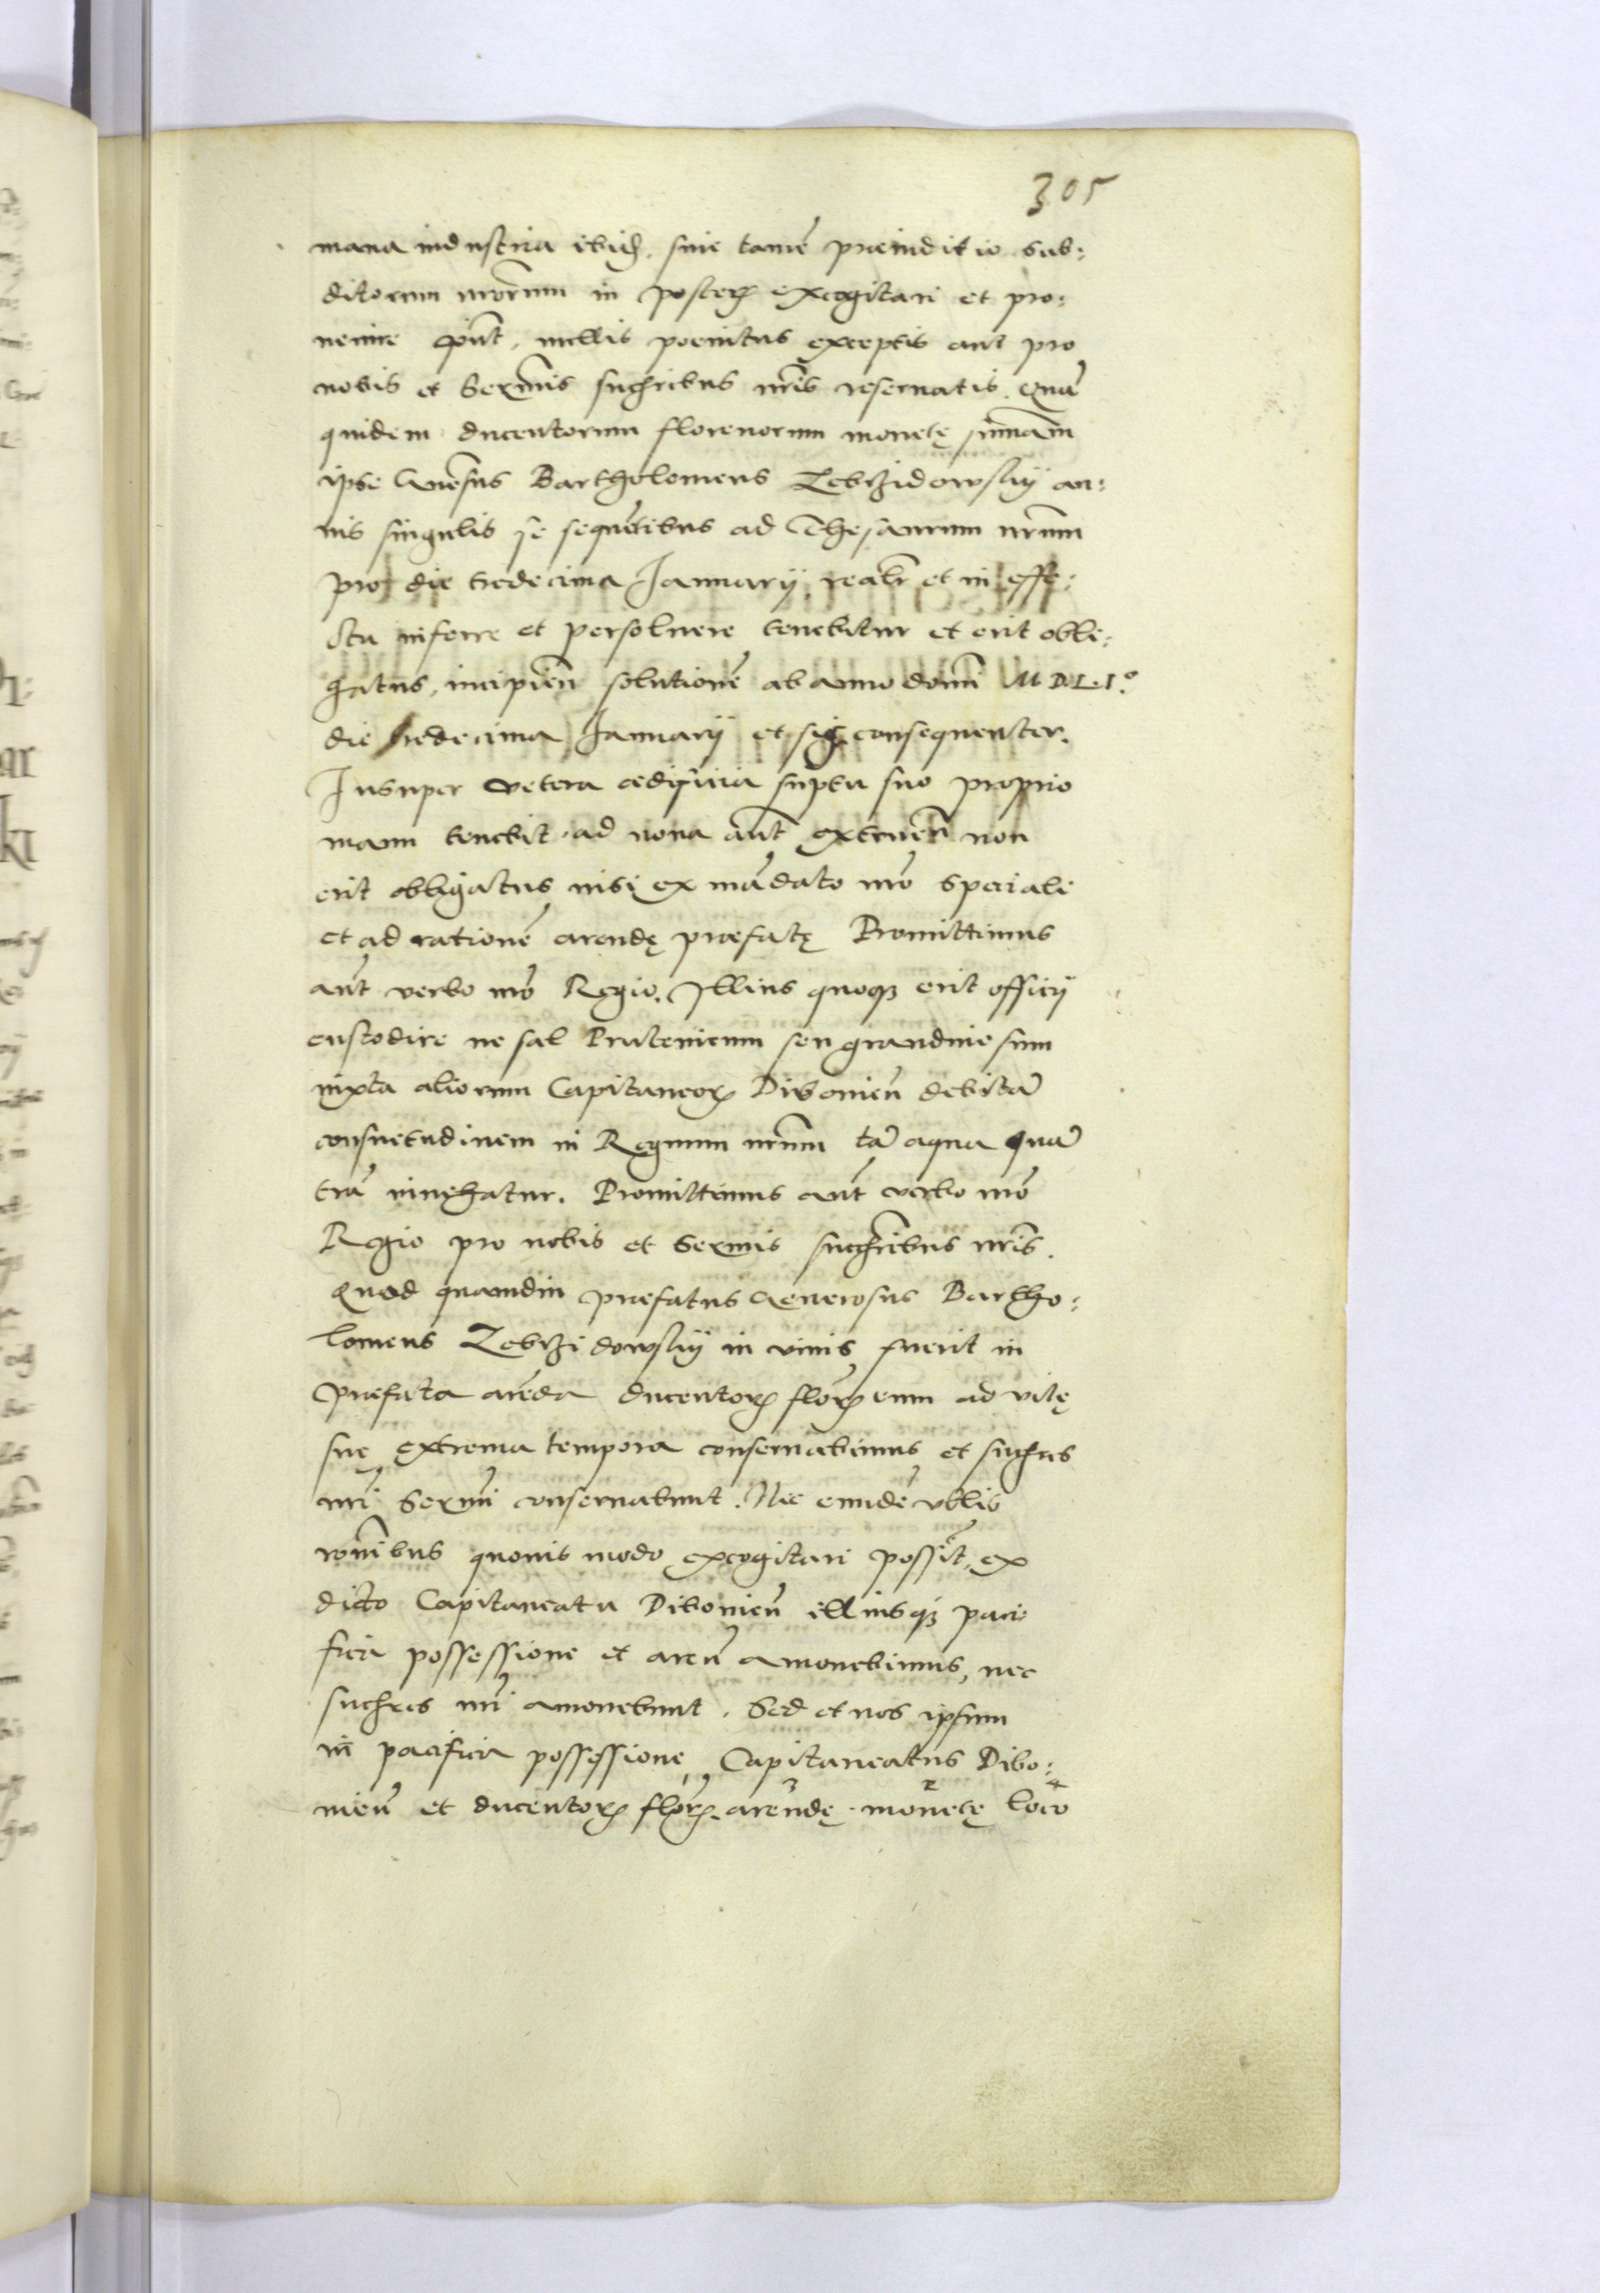 305
mana industria ibid. sine tamē praeiuditio sub:
ditorum nr̄orum in poster excogitari et pro:
uenire pñt, nullis poenitus exceptis aut pro
nobis et Serm̄is sucћribus nr̄is reseruatis. Quā
quidem ducentorum florenorum monetę sum̄am
ipse Gñesus Bartholomeus Zebrzidowskij an:
nis singulis se sequētibus ad Thesaurum nr̄um
pro die tredecima Januarij realr̄ et in effe:
ctu inferre et persoluere tenebitur et erit obli:
gatus, incipieñ solutionē ab anno domī M.D.L.I.º
die tredecima Januarij et sic consequenter.
Insuper vetera aedificia sūptu suo proprio
manu tenebit. ad noua aūt extrueñ non
erit obligatus nisi ex mādato nr̄o speciali
et ad rationē arendę praefatę Promittimus
aūt verbo nr̄o Regio. Illius quoq3 erit officij
custodire ne sal Prutenicum seu grandinosum
iuxta aliorum Capitaneor Dibouieñ debitā
consuetudinem in Regnum nr̄um tā aqua quā
trā inuehatur. Promittimus aūt verbo nr̄o
Regio pro nobis et Serm̄is succћribus nr̄is.
Quod quamdiu praefatus Generosus Bartho:
lomeus Zebrzidowskij in viuis fuerit in
praefata arēda ducentor flor eum ad vitę
suę extrema tempora conseruabimus et sucћres
nr̄i Serm̄i conseruabunt. Nec eundē vllis
ronībus quouis modo excogitari possīt, ex
dicto Capitaneatu Dibouieñ illiusq3 paci
fica possessione et areñ amouebimus, nec
sucћres nr̄i amouebunt. Sed et nos ipsum
in pacifica possessione, Capitaneatus Dibo:
uieñ et ducentor flor arendę monetę loco